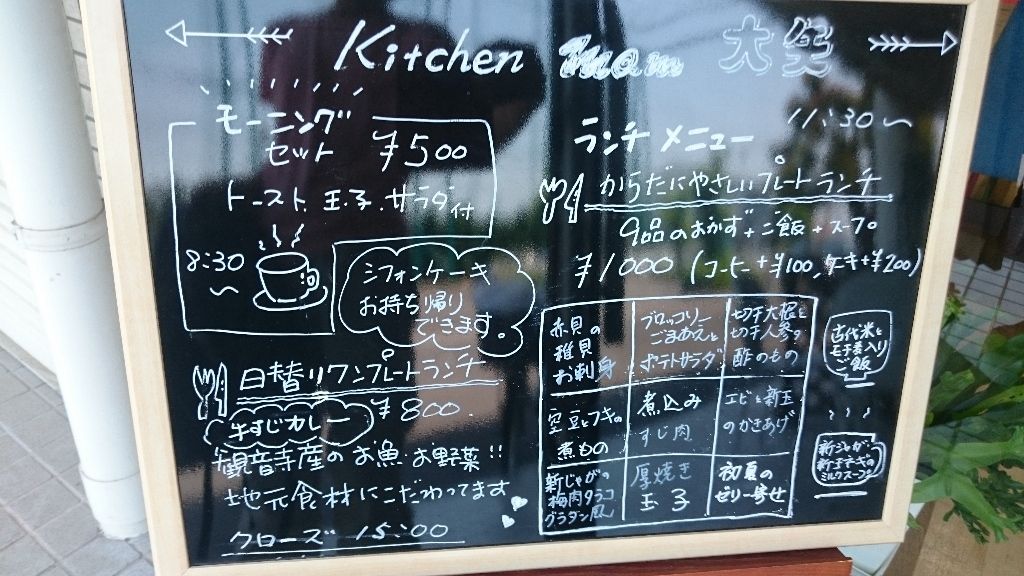 Kitchen mam 大笑
モーニング
セット ¥500
トースト.玉子.サラダ付
8:30
〜
シフォンケーキ
お持ち帰り
できます。
日替りワンプレートランチ
¥800.
牛すじカレー
観音寺産のお魚.お野菜!!
地元食材にこだわってます
クローズ 15:00
11:30〜
ランチメニュー
からだにやさしいプレートランチ
9品のおかず+ご飯+スープ。
¥1000 (コーヒー+¥100、ケーキ+¥200)
赤貝の
稚貝
お刺身
ブロッコリー
ごまあえと
ポテトサラダ
切干大根と
切干人参の
酢のもの
空豆とフキの
煮もの
煮込み
すじ肉
エビと新玉
のかきあげ
新じゃがの
梅肉タラコ
グラタン風
厚焼き
玉子
初夏の
ゼリー寄せ
古代米と
モチ麦入り
ご飯
新ジャガ
ミルクスープ